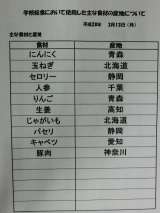 学校給食において使用した主な食材の産地について
平成28年 3月13日（月）
主な食材と産地
食材 産地
にんにく 青森
玉ねぎ 北海道
セロリー 静岡
人参 千葉
りんご 青森
生姜 高知
じゃがいも 北海道
パセリ 静岡
キャベツ 愛知
豚肉 神奈川